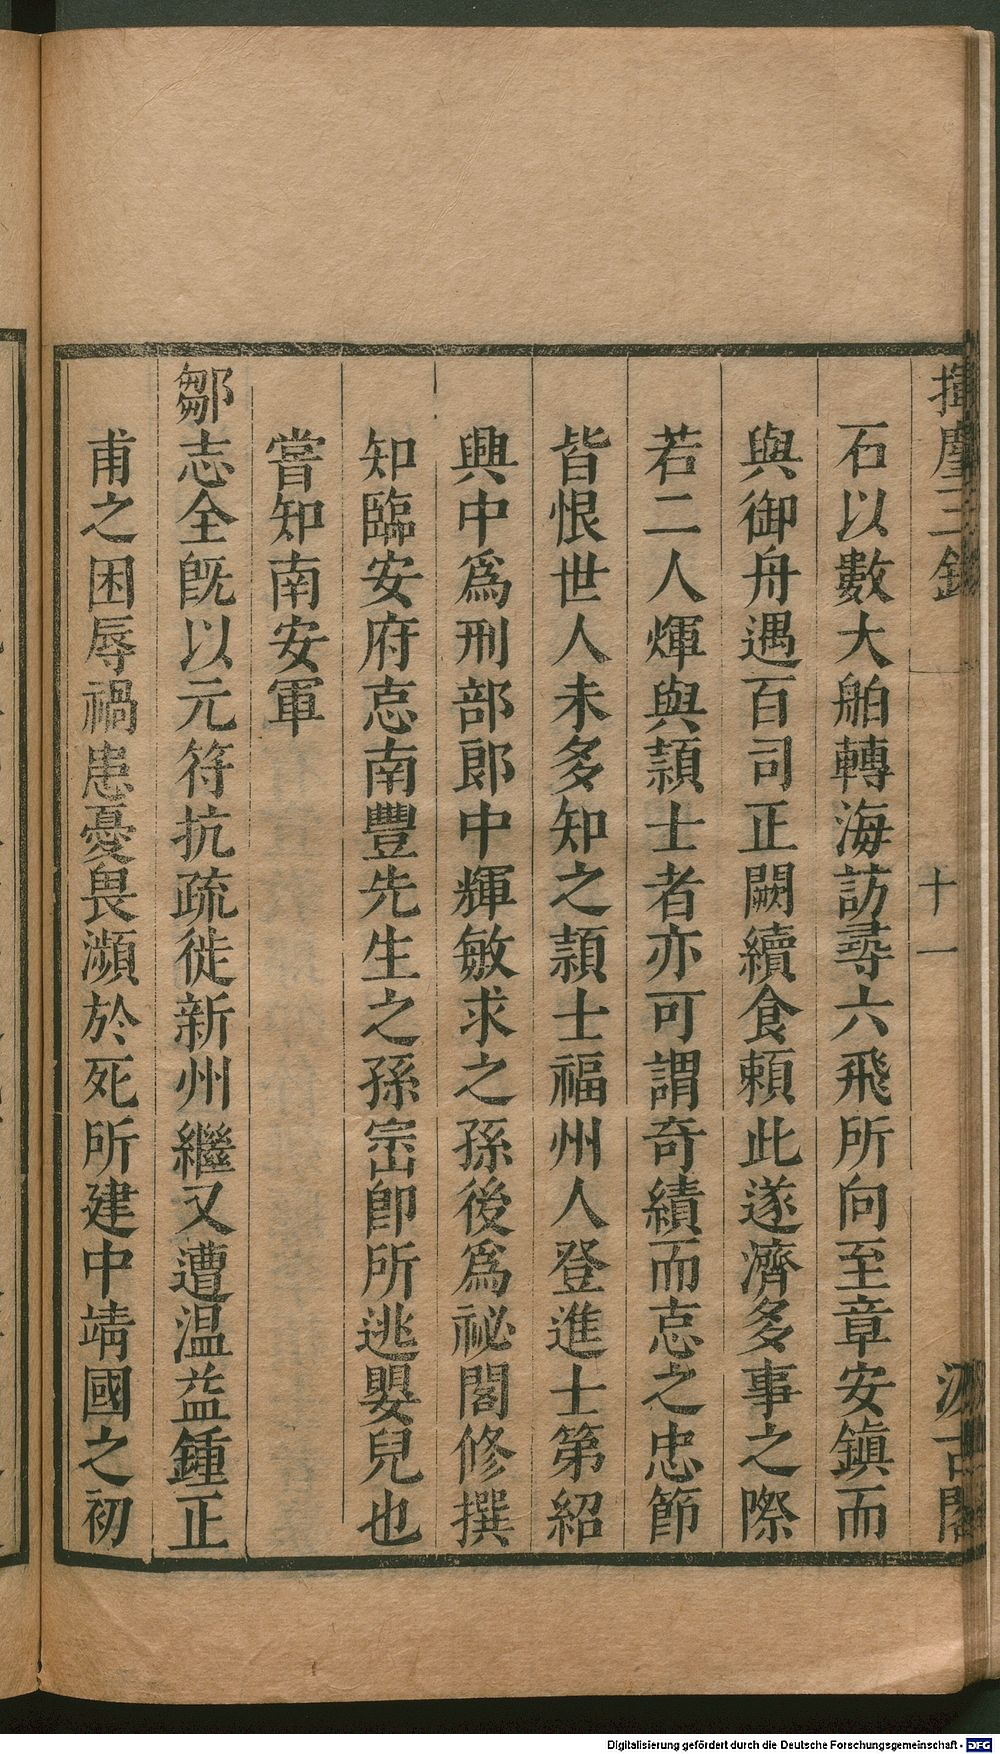 揮麈三錄 十一 汲古閣
石以數大舶轉海訪尋六飛所向至章安鎮而
與御舟遇百司正闕續食賴此遂濟多事之際
若二人煇與頴士者亦可謂奇績而忘之忠節
皆恨世人未多知之頴士福州人登進士第紹
興中爲刑部郎中輝敏求之孫後爲祕閣修撰
知臨安府忘南豐先生之孫崈卽所逃嬰兒也
嘗知南安軍
鄒志全旣以元符抗疏徙新州繼又遭温益鍾正
甫之困辱禍患憂畏瀕於死所建中靖國之初
Digitalisierung gefördert durch die Deutsche Forschungsgemeinschaft - DFG